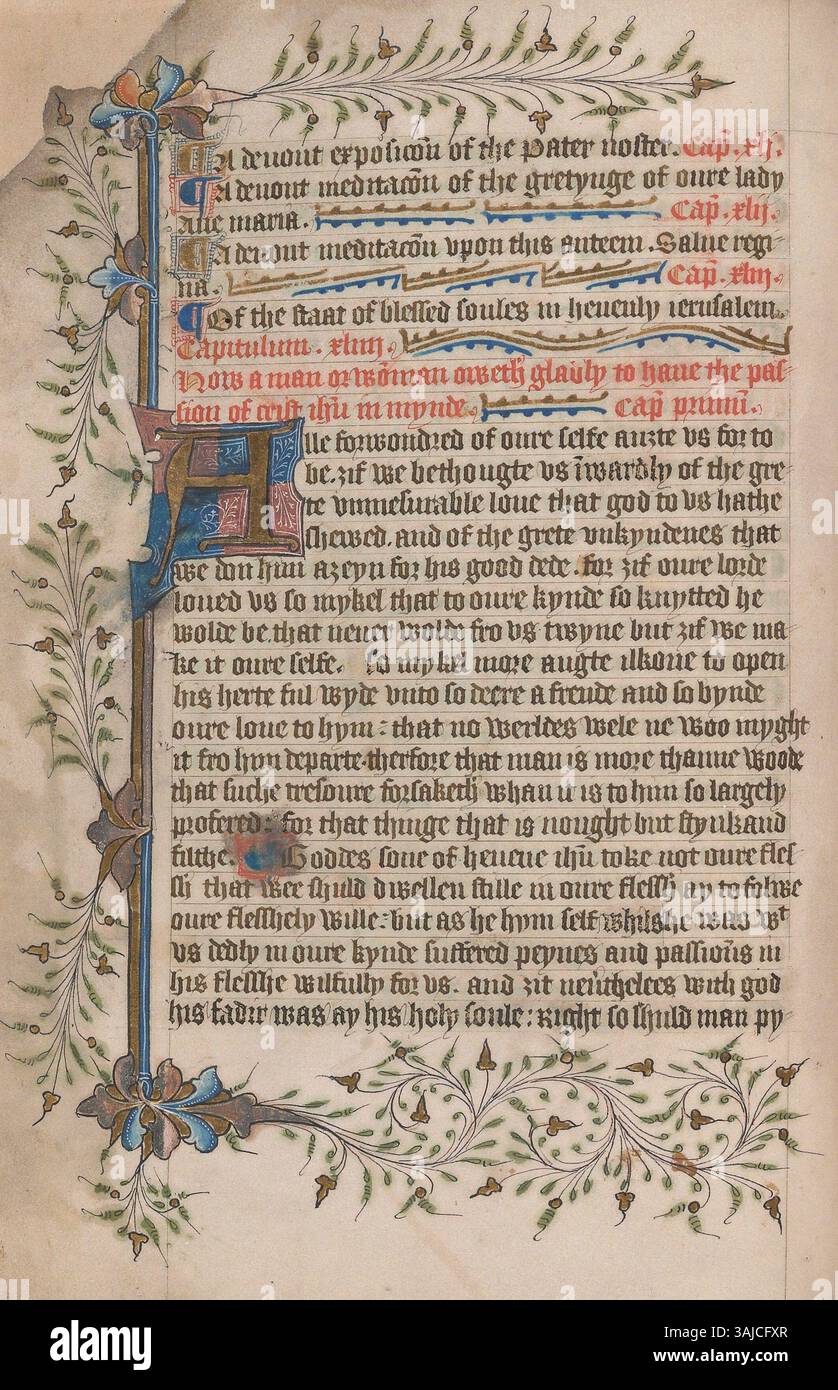 A deuout exposicōn of the Pater noster. Cap̄. xlj.
A deuout meditacōn of the gretynge of oure lady
aue maria. Cap̄. xlij.
A deuout meditacōn vpon this anteem. Salue regi-
na. Cap̄. xliij.
Of the staat of blessed soules in heuenly ierusalem.
Capitulum. xliiij.
How a man or wōman oweth gladly to haue the pas-
sion of crist ihū in mynde. Cap̄ primū.
Alle forwondred of oure selfe auzte vs for to
be. zif we bethougte vs īwardly of the gre-
te vnmesurable loue that god to vs hathe
shewed. and of the grete vnkyndenes that
we don him azeyn for his good dede. for zif oure lorde
loued vs so mykel that to oure kynde so knytted he
wolde be. that neuer wolde fro vs twyne but zif we ma-
ke it oure selfe. so mykel more augte ilkone to open
his herte ful wyde vnto so deere a frende and so bynde
oure loue to hym: that no werldes wele ne woo myght
it fro hym departe. therfore that man is more thanne woode
that suche tresoure forsaketh whan it is to him so largely
profered: for that thinge that is nought but stynk and
filthe. Goddes sone of heuene ihū toke not oure fles-
sh that wee shuld dwellen stille in oure flessh ay to folwe
oure flesshely wille: but as he hym self whils he was wᵗ
vs dedly in oure kynde suffered peynes and passioūs in
his flesshe wilfully for vs. and zit neu'thelees with god
his fadir was ay his holy soule: Right so shuld man py-
alamy
Image ID: 3AJCFXR
www.alamy.com